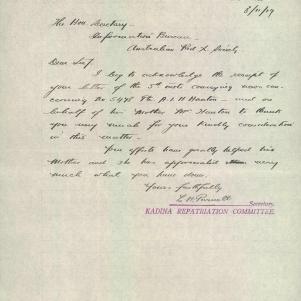 8/11/19
The Hon Secretary
Information Bureau
Australian Red X Society
Dear Sir,
I beg to acknowledge the receipt of
your letter of the 5th inst conveying news con-
cerning No 5498 Pte A. I. H and on
behalf of his Mother Mrs to thank
you very much for your kindly consideration
in this matter.
Your efforts have greatly helped his
Mother and she has appreciated very
much what you have done.
Yours faithfully
Secretary,
KADINA REPATRIATION COMMITTEE.